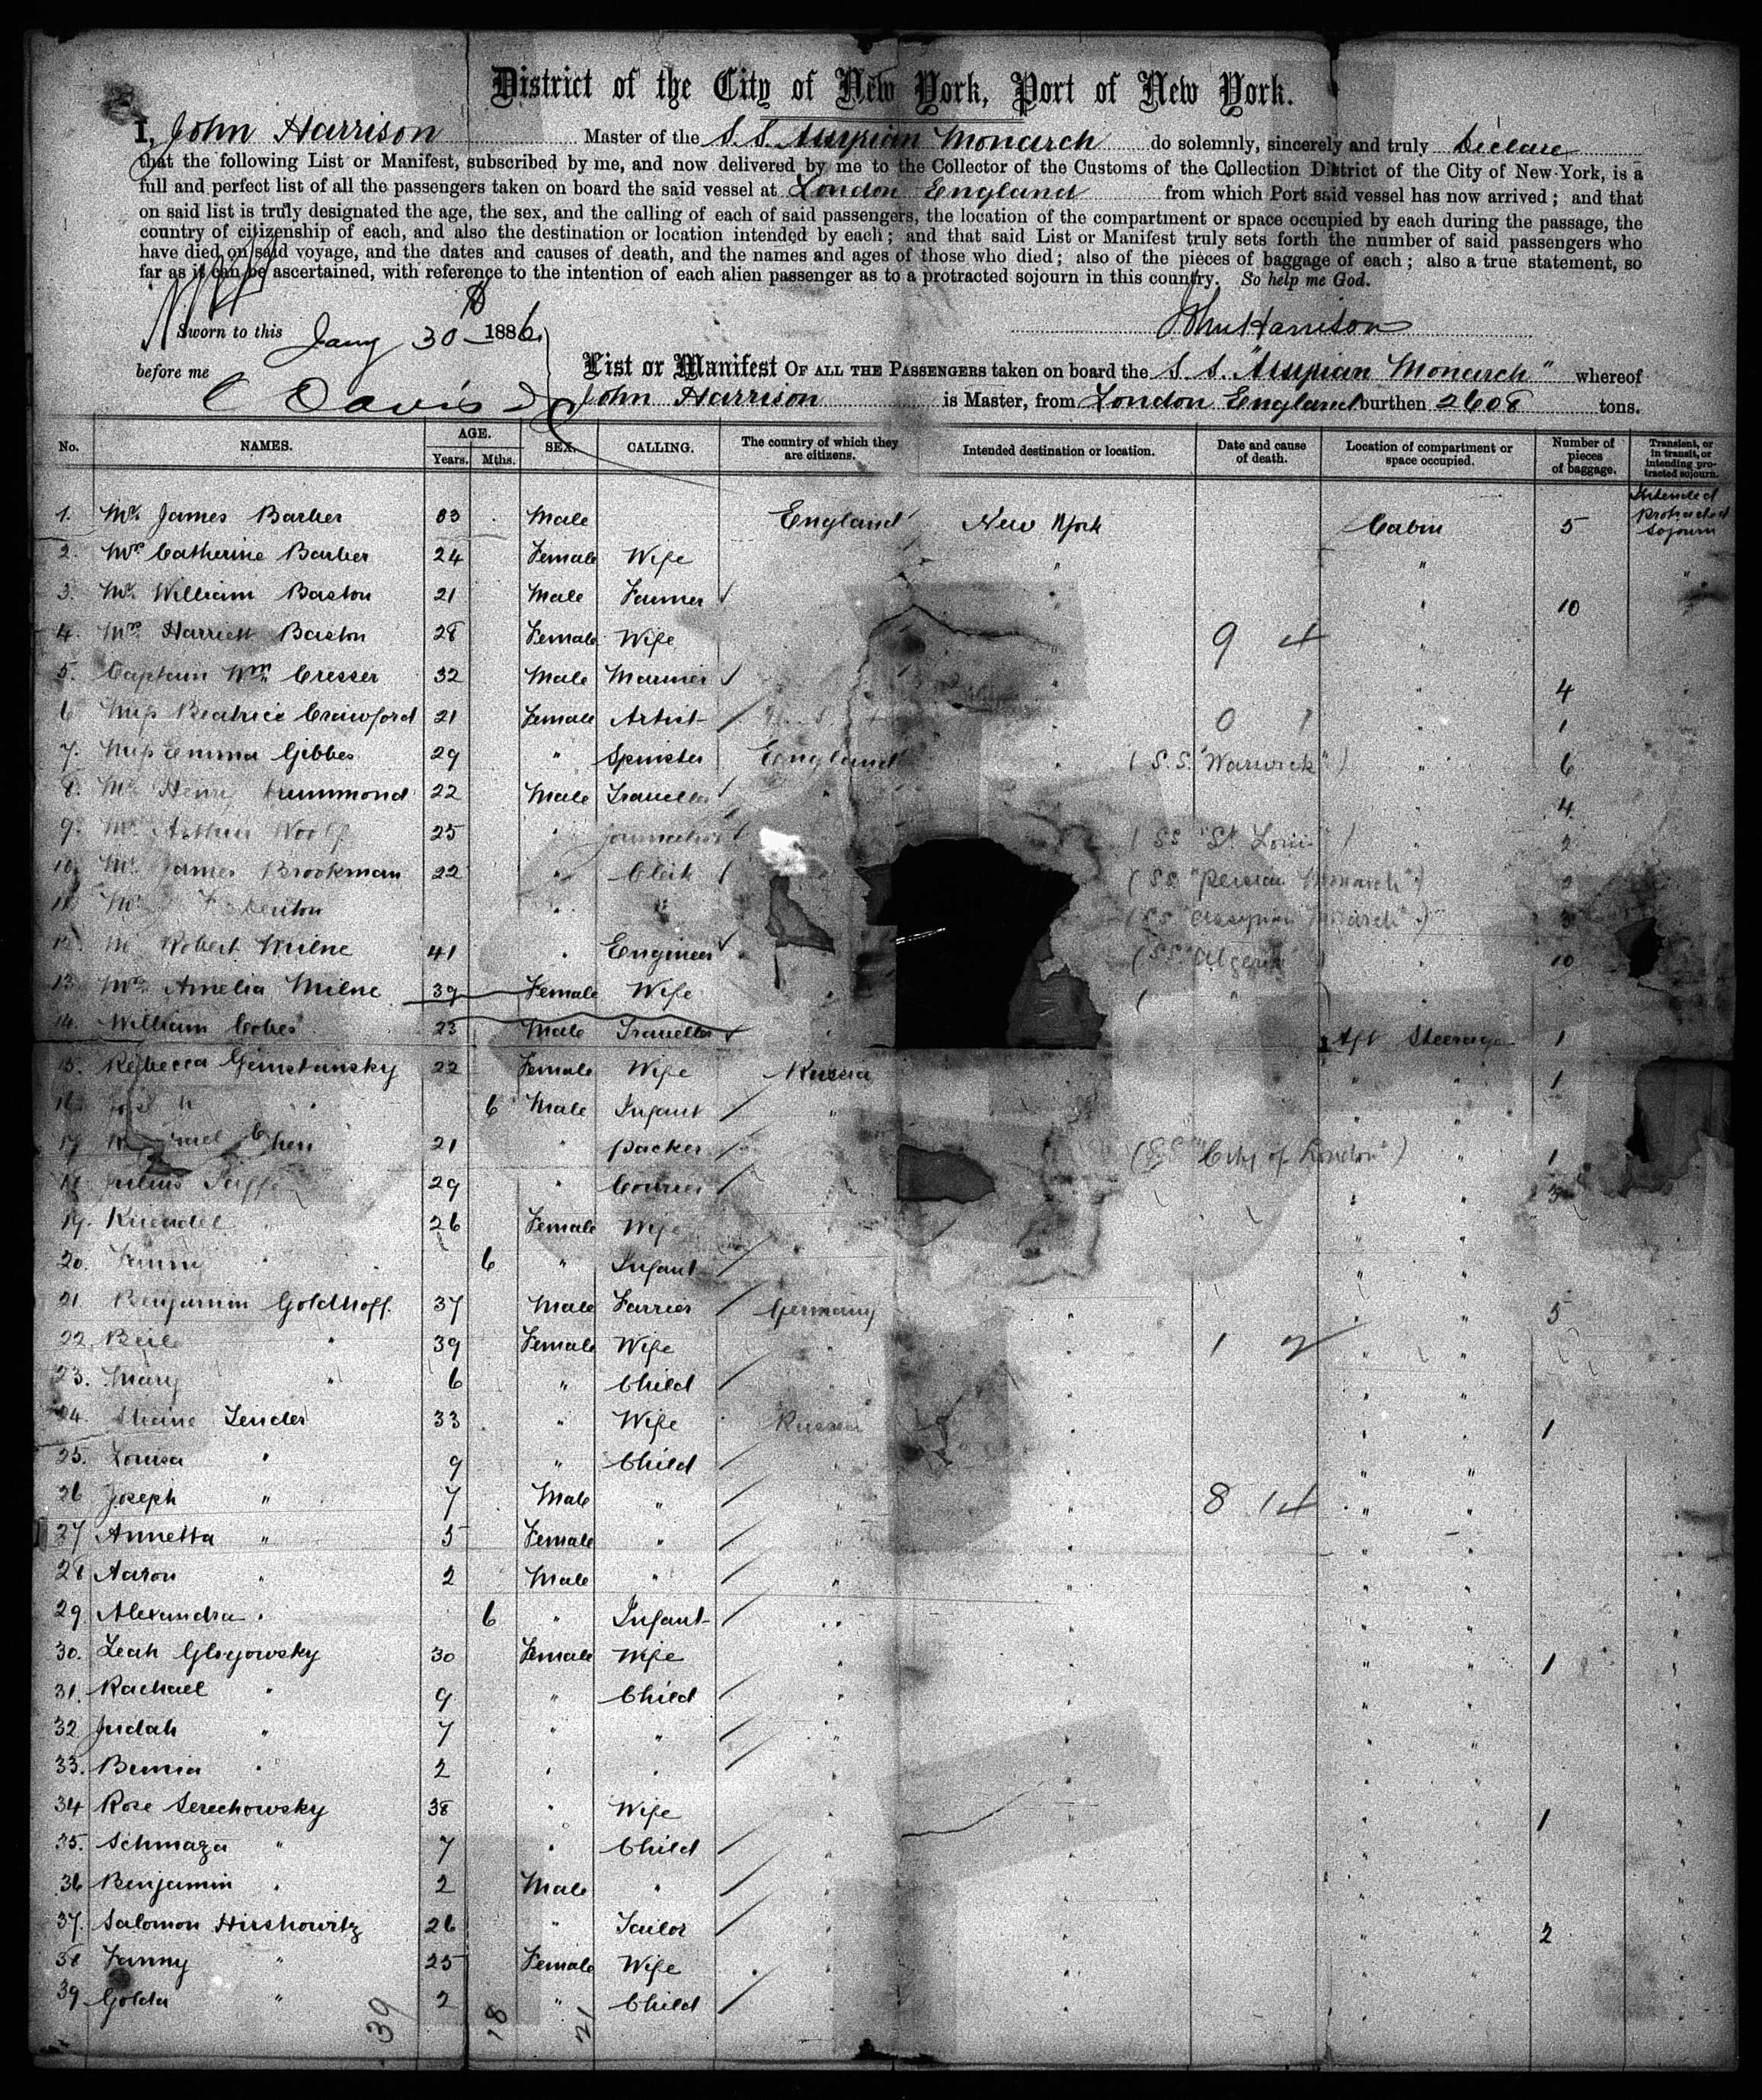 District of the City of New York, Port of New York.
I, John Harrison Master of the S.S. Assyrian Monarch do solemnly, sincerely and truly Declare
that the following List or Manifest, subscribed by me, and now delivered by me to the Collector of the Customs of the Collection District of the City of New York, is a
full and perfect list of all the passengers taken on board the said vessel at London England from which Port said vessel has now arrived; and that
on said list is truly designated the age, the sex, and the calling of each of said passengers, the location of the compartment or space occupied by each during the passage, the
country of citizenship of each, and also the destination or location intended by each; and that said List or Manifest truly sets forth the number of said passengers who
have died on said voyage, and the dates and causes of death, and the names and ages of those who died; also of the pieces of baggage of each; also a true statement, so
far as it can be ascertained, with reference to the intention of each alien passenger as to a protracted sojourn in this country. So help me God.
Sworn to this Jany 30 1886 John Harrison
before me C Davis
List or Manifest OF ALL THE PASSENGERS taken on board the S.S. "Assyrian Monarch" whereof
John Harrison is Master, from London England burthen 2608 tons.
No. NAMES. AGE. Years. Mths. SEX. CALLING. The country of which they are citizens. Intended destination or location. Date and cause of death. Location of compartment or space occupied. Number of pieces of baggage. Transient, or in transit, or intending protracted sojourn.
1. Mr. James Barber 33 Male England New York Cabin 5 Intended protracted sojourn
2. Mrs Catherine Barber 24 Female Wife " "
3. Mr. William Baston 21 Male Farmer " 10
4. Mrs Harriett Baston 28 Female Wife " 9 4
5. Captain Wm. Cresser 32 Male Mariner " 4
6 Miss Beatrice Crawford 21 Female Artist " 0 1 1
7. Miss Emma Gibbes 29 " Spinster England " (S.S. "Warwick") " 6
8. Mr Henry Drummond 22 Male Traveller " 4
9. Mr. Arthur Woolf 25 " Journalist (SS "St Louis") " 2
10. Mr. James Brookman 22 " Clerk (SS "Persian Monarch") 2
11. Mr " (SS "Assyrian Monarch") 3
12. Mr Robert Milne 41 " Engineer (SS "Algeria" 10
13. Mrs Amelia Milne 39 Female Wife " ( " "
14. William Cohes 23 Male Traveller " Aft Steerage 1
15. Rebecca Gimstansky 22 Female Wife Russia " " 1
16. " 6 Male Infant " " "
17 21 " Packer (SS "City of London") " 1
18 Julius 29 " Courier " " 3
19. 26 Female Wife " "
20. Fanny " 6 " Infant " "
21 Benjamin Goldhoff. 37 Male Farrier Germany " " " 5
22. Beile " 39 Female Wife " 1 2 " "
23. Mary " 6 " Child " " "
24. Lender 33 " Wife Russia " " " 1
25. Louisa " 9 " Child " " " "
26 Joseph " 7 Male " " " 8 14 " "
27 Annetta " 5 Female " " "
28 Aaron " 2 Male " " " " "
29. Alexandra " 6 " Infant " " " "
30. Leah Glryowsky 30 Female Wife " " " " 1
31. Rachael " 9 " Child " " " "
32 Judah " 7 " " " " " "
33. Bunia " 2 " " " " " "
34 Rose Serechowsky 38 " Wife " " " " 1
35. Schmaga " 7 " Child " " " "
36 Benjamin " 2 Male " " " " "
37. Salomon Hirshowitz 26 " Tailor " " " " 2
38 Fanny " 25 Female Wife " " " "
39 Golda " 2 " Child " " " "
39 18 21